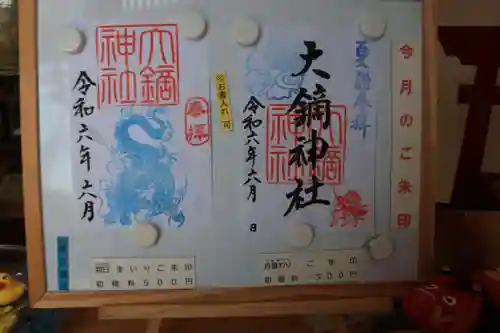 今月のご朱印
夏詣参拝
大鏑神社
令和六年六月 日
大鏑
神社
お書入れ可
大鏑
神社
奉拝
令和六年 六月
月替わり ご朱印
初穂料 500円
まいりご朱印
初穂料 500円